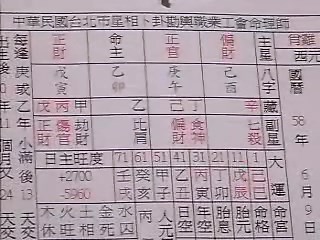 中華民國台北市星相卜卦勘輿職業工會命理師
出生後 每逢 正財 命主 正官 偏財 主星 肖雞 元
戊 乙 庚 己 八字 國曆
戌 卯 午 酉
戊丙甲 乙 己丁 辛 藏 58年
正財 傷官 劫財 比肩 偏財 食神 七殺 副星
日主旺度 71 61 51 41 31 21 11 1 大運 6月
+2700 壬 癸 甲 乙 丙 丁 戊 己
-5960 戌 亥 子 丑 寅 卯 辰 巳 9日
天 木火土金水 人元 日空 年空 胎息 胎元 命宮
交 休旺相死囚